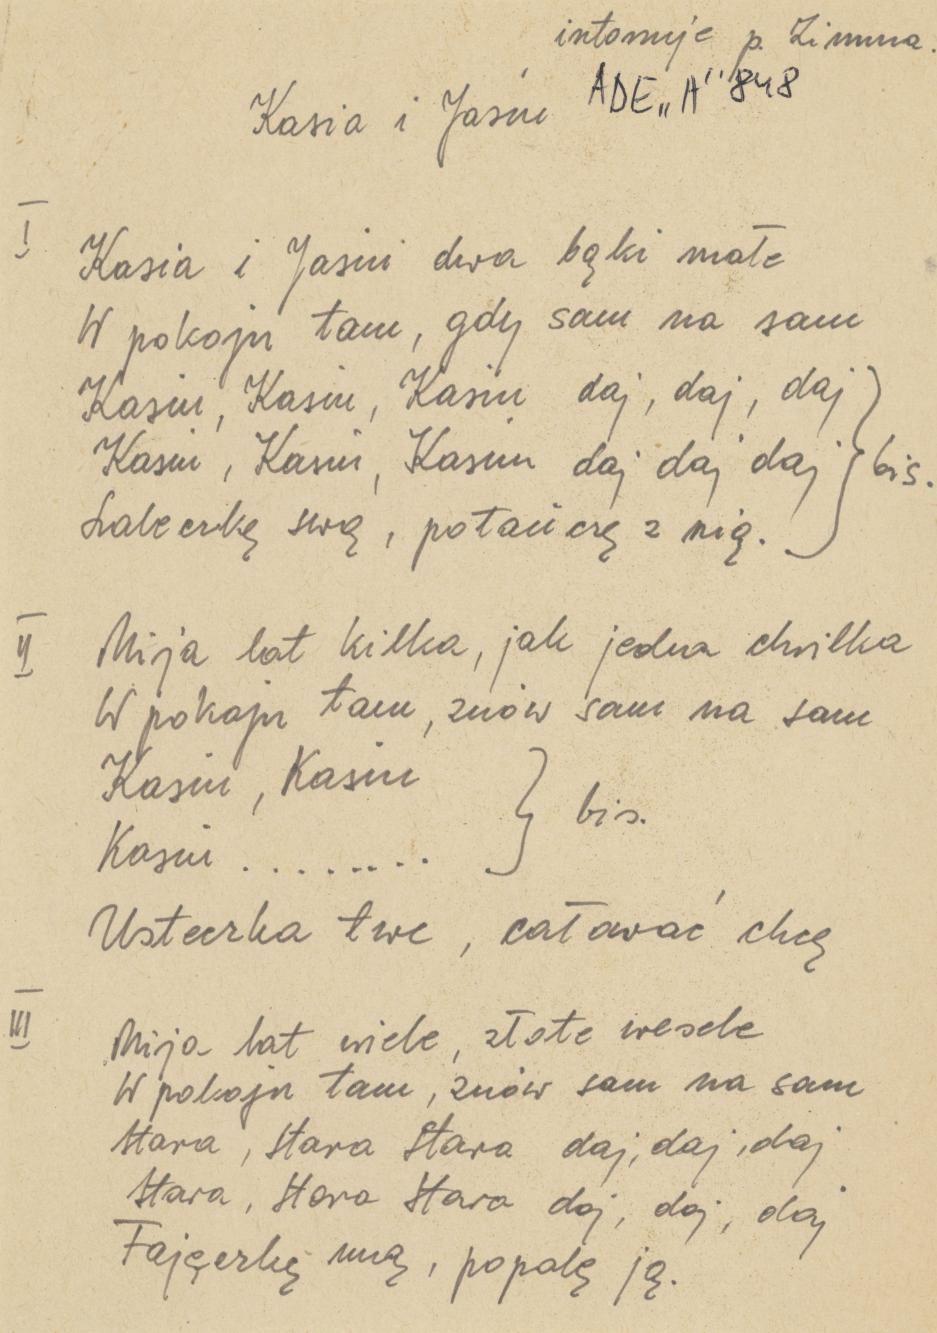 intonuje p. Zimma.
ADE „A" 848
Kasia i Jasiu
I
Kasia i Jasiu dwa bąki małe
W pokoju tam, gdy sam na sam
Kasiu, Kasiu, Kasiu daj, daj, daj
Kasiu, Kasiu, Kasiu daj daj daj
bis.
Laleczkę swą, potańczę z nią.
II
Mija lat kilka, jak jedna chwilka
W pokoju tam, znów sam na sam
Kasiu, Kasiu
bis.
Kasiu ........
Usteczka twe, całować chcę
III
Mija lat wiele, złote wesele
W pokoju tam, znów sam na sam
Stara, Stara Stara daj, daj, daj
Stara, Stara Stara daj, daj, daj
Fajęczkę mą, popalę ją.